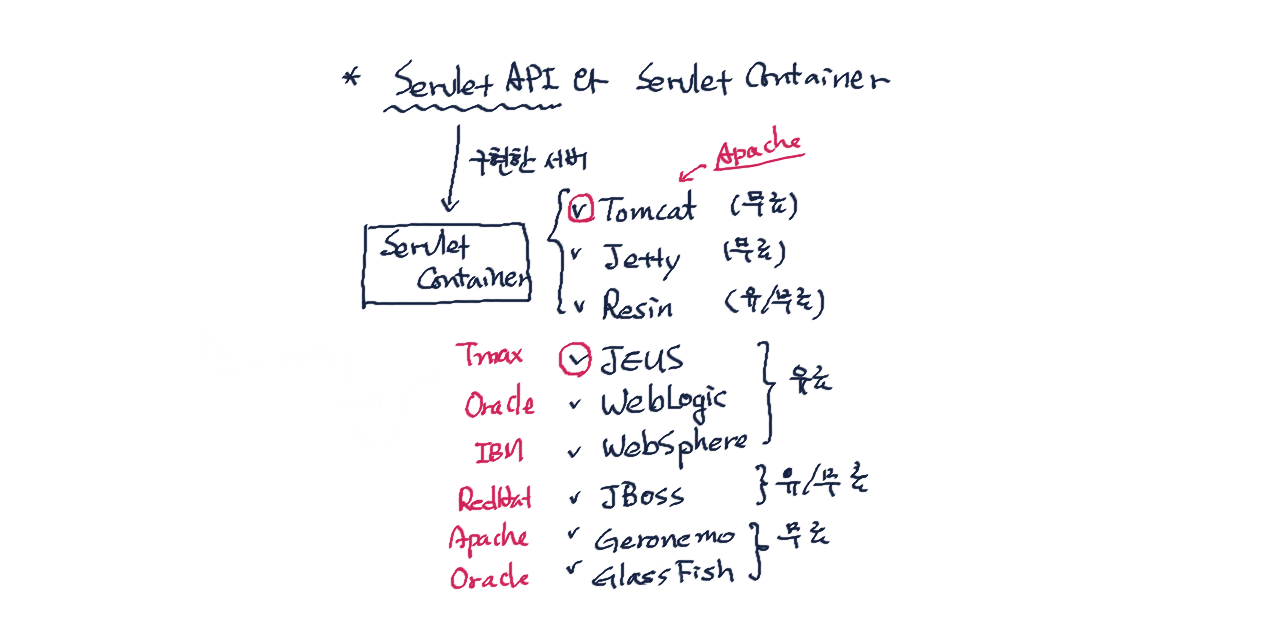 * Servlet API 와 Servlet Container
구현한 서버
Apache
Servlet
Container
✓ Tomcat (무료)
✓ Jetty (무료)
✓ Resin (유/무료)
Tmax ✓ JEUS
Oracle ✓ WebLogic
유료
IBM ✓ WebSphere
RedHat ✓ JBoss
유/무료
Apache ✓ Geronemo
무료
Oracle ✓ GlassFish